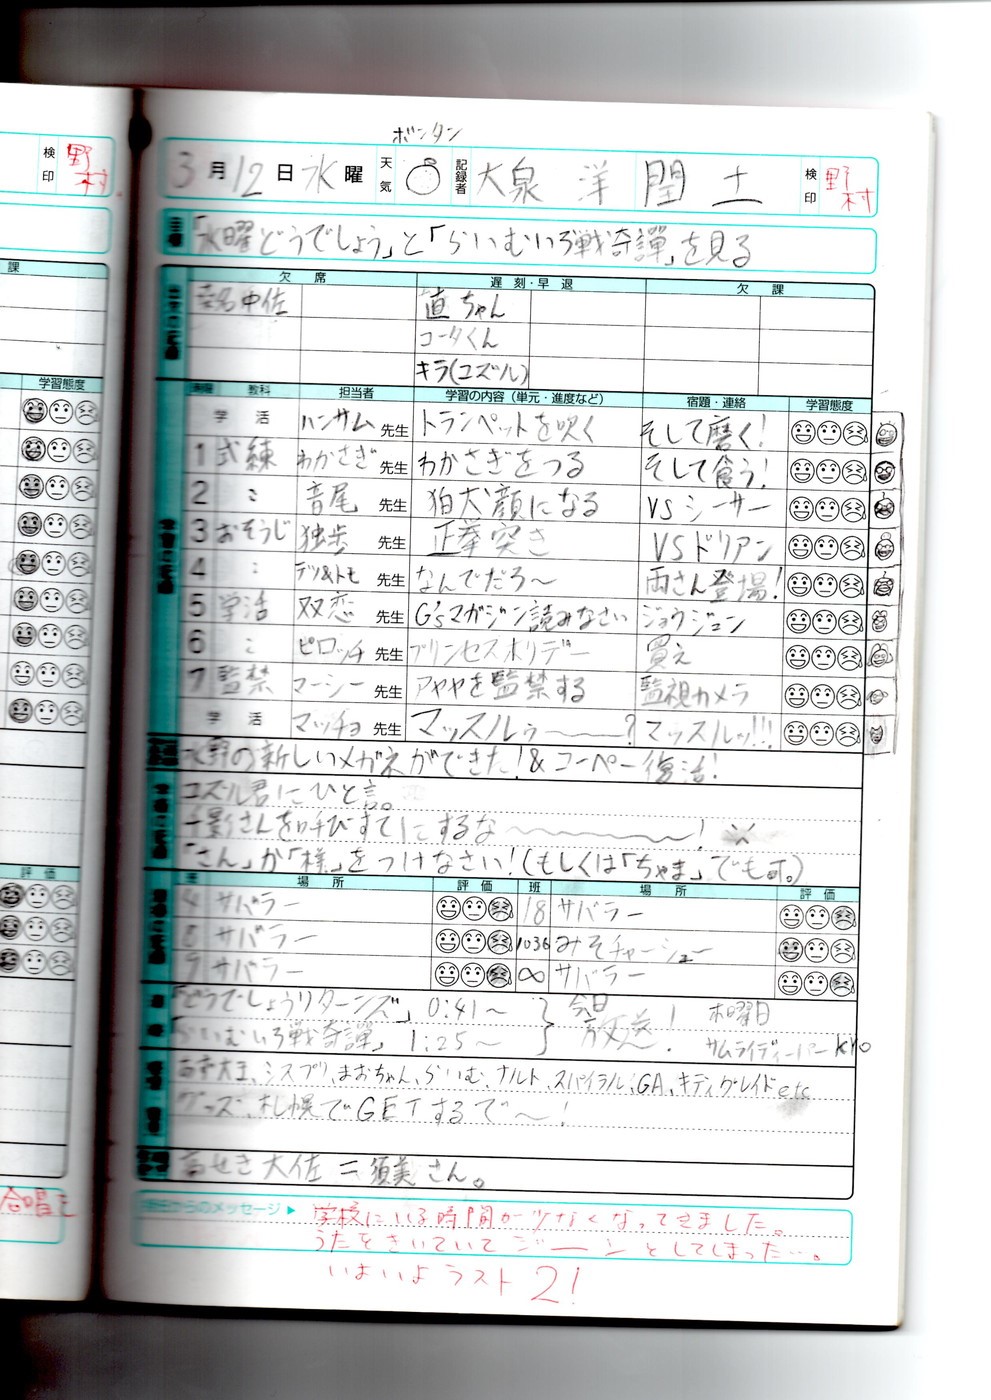 ボンタン
検印 野村
3月12日水曜 天気 記録者 大泉 洋 閏土 検印 野村
目標 「水曜どうでしょう」と「らいむいろ戦奇譚」を見る
課
欠席 遅刻・早退 欠課
桑名中佐 直ちゃん
コータくん
キラ(コズル)
学習態度
教科 担当者 学習の内容(単元・進度など) 宿題・連絡 学習態度
学活 ハンサム先生 トランペットを吹く そして磨く!
1 式練 わかさぎ先生 わかさぎをつる そして食う!
2 〃 音尾先生 狛犬顔になる VSシーサー
3 おそうじ 独歩先生 正拳突き VSドリアン
4 〃 テツ&トモ先生 なんでだろ〜 両さん登場!
5 学活 双恋先生 G'sマガジン読みなさい ジョウジュン
6 〃 ピロッチ先生 プリンセスホリデー 買え
7 監禁 マーシー先生 アヤヤを監禁する 監視カメラ
学活 マッチョ先生 マッスルゥ〜? マッスルッ!!!
水野の新しいメガネができた!&コーペー復活!
コズル君にひと言。
千影さんを呼びすてにするな〜!
「さん」か「様」をつけなさい!(もしくは「ちゃま」でも可。)
評価
班 場所 評価 班 場所 評価
4 サバラー 18 サバラー
8 サバラー 1036 みそチャーシュー
9 サバラー ∞ サバラー
「どうでしょうリターンズ」 0:41〜 今日放送! 木曜日
「らいむいろ戦奇譚」 1:25〜 サムライディーパーkyo
あず大王、シスプリ、まおちゃん、らいむ、ナルト、スパイラル、GA、キディグレイドetc
グッズ、札幌でGETするで〜!
高せき大佐=須美さん。
合唱を
担任からのメッセージ▶ 学校にいる時間が少なくなってきました。
うたをきいていてジーンとしてしまった…。
いよいよラスト2!